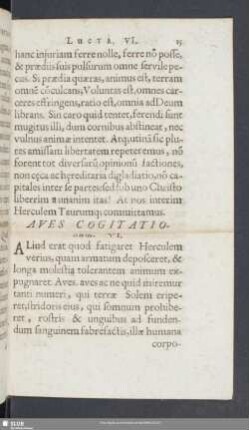 Lucta. VI. 25
hanc injuriam ferre nolle, ferre nō posse,
& prædiis suis pulsurum omne servile pe-
cus. Si prædia quæras, animus est, terram
omnē cōculcans, Voluntas est, omnes car-
ceres effringens, ratio est, omnia ad Deum
librans. Sin caro quid tentet, ferendi sunt
mugitus illi, dum cornibus abstineat, nec
vulnus animæ intentet. Atq; utinā sic plu-
res amissam libertatem repeteremus, nō
forent tot diversarū opinionū factiones,
non ea ac hereditaria digladiatio, nō ca-
pitales inter se partes, sed sub uno Christo
liberrim utinam ita! At nos interim
Herculem Taurumq; committamus.
AVES COGITATIO-
num. VI.
Aliud erat quod fatigaret Herculem
verius, quam armatum deposceret, &
longa molestia tolerantem animum ex-
pugnaret. Aves. aves ac ne quid miremur
tanti numeri, qui terræ Solem eripe-
ret, stridoris eius, qui somnum prohibe-
ret, rostris & unguibus ad funden-
dum sanguinem fabrefactis, illæ humana
corpo-
SLUB